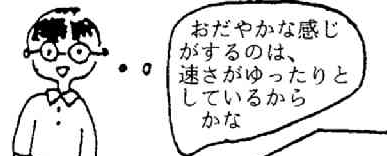 おだやかな感じ
がするのは、
速さがゆったりと
しているから
かな